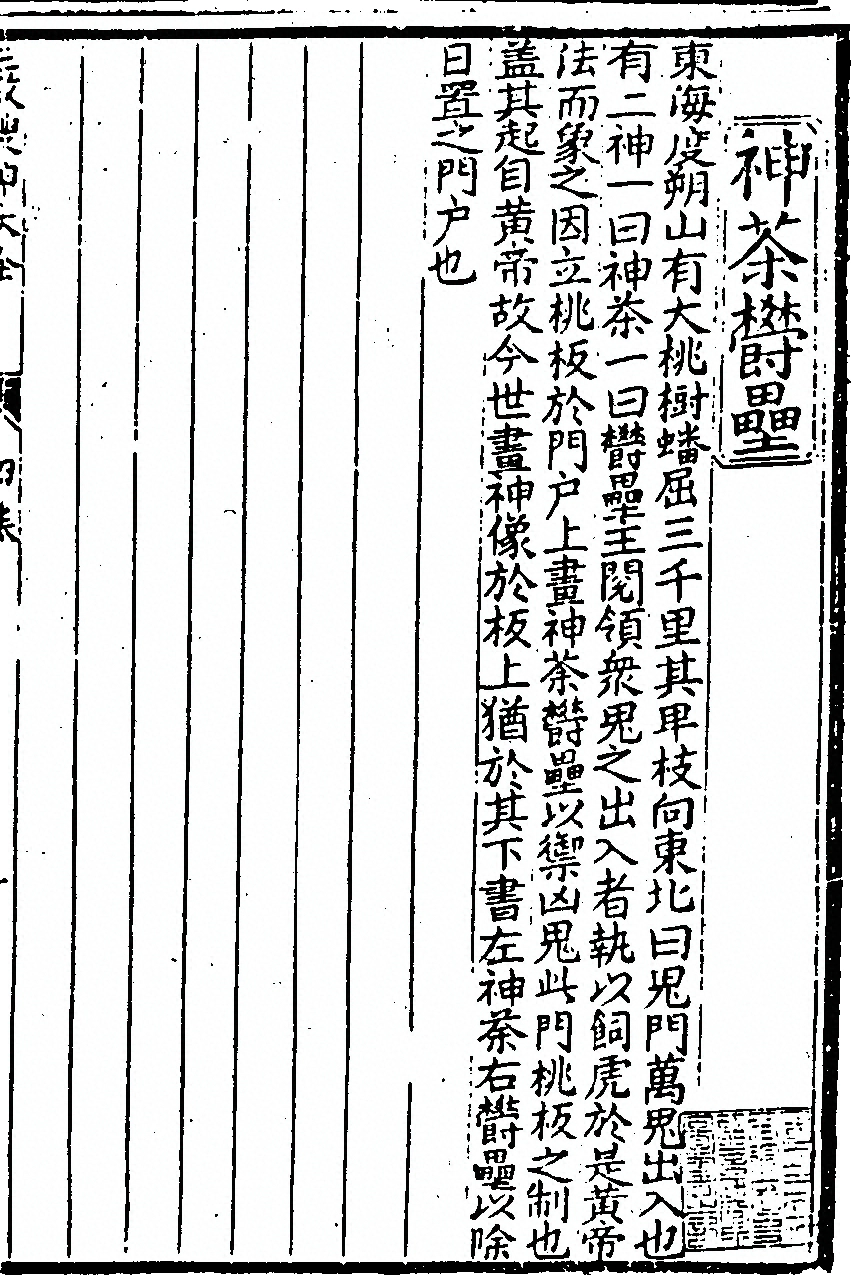 神荼欝壘
東海度朔山有大桃樹蟠屈三千里其卑枝向東北曰鬼門萬鬼出入也
有二神一曰神荼一曰欝壘主閱領衆鬼之出入者執以飼虎於是黃帝
法而象之因立桃板於門户上畫神荼欝壘以禦凶鬼此門桃板之制也
盖其起自黃帝故今世畫神像於板上猶於其下書左神荼右欝壘以除
日置之門户也